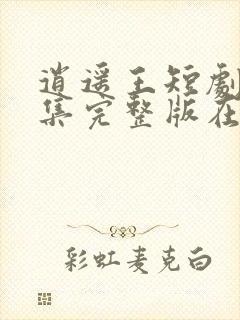 逍遥王短劇
集完整版在
彩虹麦克白